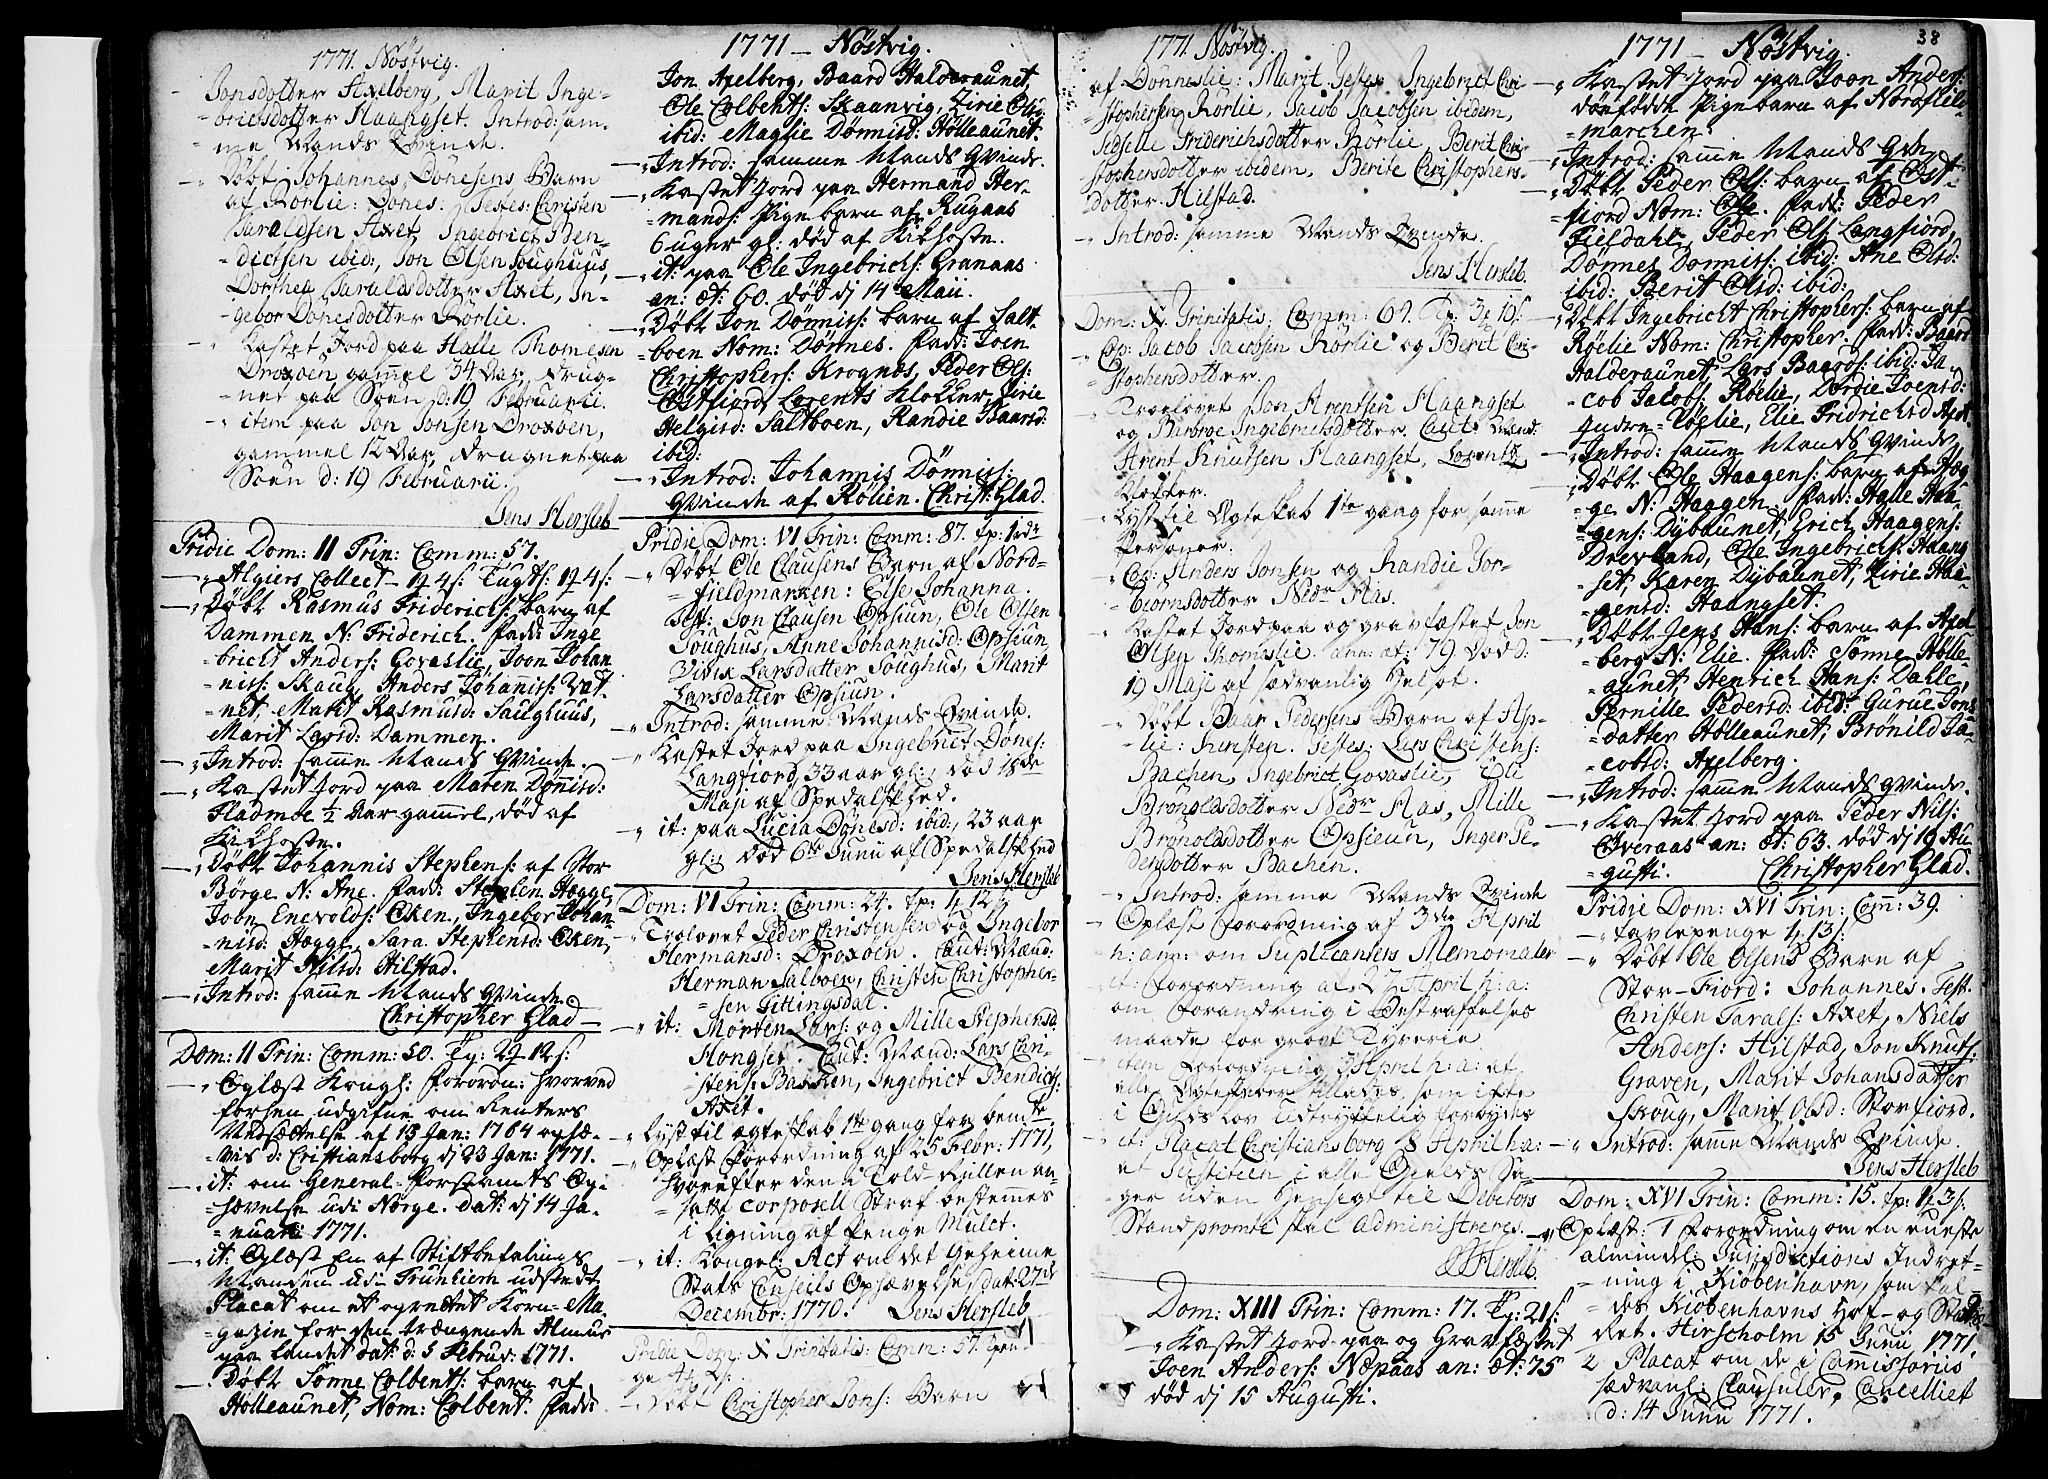 1771. Nöstvig.
Jonsdotter Axelberg, Marit Inge-
bricksdotter Haangset. Introd: sam-
me Mands Qvinde.
Döbt Johannes Dönesens Barn
af Rörlie: Dönes. Testes: Christen
Taraldsen Axet, Ingebrict Ben-
dictsen ibid:, Jon Olsen Soughuus,
Dorthea Taraldsdotter Axet, In-
gebor Donesdotter Rörlie.
Kastet Jord paa Halle Thomesen
Droxoen, gammel 34 Aar, drug-
net paa Söen d: 19 Februarii.
item paa Jon Jonsen Droxoen,
gammel 12 Aar, drugnet paa
Söen d: 19 Februarii.
Jens Hersleb
Pridie Dom: II Trin: Comm: 57.
Algiers Collect
Döbt Rasmus Friderichs: barn af
Dammen N: Friderich. fadd: Inge
bricht Anders: Govaslie, Joon Johan
niss: Skaug, Anders Johannis: Vat-
net, Marit Rasmusd: Saughuus,
Marit Larsd: Dammen.
Introd: samme Mands Qvinde.
Kastet Jord paa Maren Dönnisd:
Fladmoe 1/2 Aar gammel, död af
Kikhoste.
Döbt Johannis Stephens: af Stor
Borge N: Ane. fadd: Stephen Hogge,
Joen Enevolds: Eken, Ingebor Johan
nisd: Hogge, Sara Stephensd: Eken,
Marit Nilsd: Hilstad.
Introd: samme Mands Qvinde.
Christopher Glad
Dom: II Trin: Comm: 50.
Oplæst Kongl: forordn: hvorved
forhen udgifne om Renters
Nedsættelse af 13 Jan: 1764 ophæ-
vis d: Cristiansborg dj 23 Jan: 1771.
it: om General-forstamts Op-
hævelse udi Norge. dat: dj 14 Ja-
nuarii 1771.
it: Oplæst En af Stiftbefalings
Manden udi Trunhiem udstedt
Placat om et oprettet Korn-Ma-
gazin for den trængende Almue
paa landet dat: d: 5 Februar: 1771.
Döbt Tönne Colbents: barn af
Hölleaunet, Nom: Colbent. fadd:
1771 - Nöstvig.
Jon Axelberg, Baard Halderaunet,
Ole Colbents: Skaanvig, Zirie Olsd:
ibid: Maglie Dönnisd: Hölleaunet.
Introd: samme Mands Qvinde.
Kastet Jord paa Hermand Her-
mands: Pigebarn af Rugaas
6 uger gl: död af Kikhoste.
it: paa Ole Ingebrichs: Granaas
an: æt: 60. död dj 14de Maii.
Döbt Jon Dönniss: barn af Salt-
boen Nom: Dönnes. fadd: Joen
Christophers: Krognes, Peder Ols:
Ostfiord, Lorents Klokker, Zirie
Helgisd: Saltboen, Randie Baarsd:
ibid:
Introd: Johannis Dönniss:
Qvinde af Rölien. Christ: Glad.
Pridie Dom: VI Trin: Comm: 87.
Döbt Ole Clausens Barn af Nord-
fieldmarken: Else Johanna.
Test: Jon Clausen Opsiun, Ole Olsen
Soughus, Anne Johannisd: Opsiun,
Larsdatter Soughus, Marit
Larsdatter Opsiun.
Introd: samme Mands Qvinde.
Kastet Jord paa Ingebrict Dönes:
Langfiord, 33 aar gl:, död 18de
Maji af Spedalskhed.
it: paa Lucia Dönesd: ibid:, 23 aar
gl:, död 6te Junii af Spedalskhed
Jens Hersleb
Dom: VI Trin: Comm: 24.
Trolovet Peder Christensen og Ingebor
Hermansd: Droxöen. Caut: Mænd:
Herman Salboen, Christen Christopher-
sen Sittingsdal.
it: Morten Lars: og Mille Stephensd.
Hongset. Caut: Mænd: Lars Cri-
stens: Bachen, Ingebrict Bendicts:
Axet.
Lyst til ægteskab 1te gang for bemte
Oplæst Forordning af 25 Febr: 1771,
hvorefter den i Told-Rullen an-
satte corporell Straf bestemmes
i ligning af penge Mulct.
it: Kongel: Act om det Geheime
Stats Conseils Ophævelse, dat: 27de
December: 1770. Jens Hersleb
Pridie Dom: X Trinitatis: Comm: 57.
Döbt Christopher Jons: Barn
1771. Nöstvig.
af Donneslie: Marit. Testes: Ingebrict Chri-
stophersen Rörlie, Jacob Jacobsen ibidem,
Sedselle Friderichsdotter Rörlie, Berit Chri-
stophersdotter ibidem, Berite Christophers-
dotter Hilstad.
Introd: samme Mands Qvinde.
Jens Hersleb.
Dom: X Trinitatis. Comm: 67.
Cop: Jacob Jacobsen Rörlie og Berit Chri-
stophersdotter.
Troelovet Jon Arentsen Haangset
og Barbroe Ingebricksdotter. Caut: Mænd:
Arent Knutsen Haangset, Lorentz
Klokker.
Lyst til Ægteskab 1te gang for samme
Personer.
Cop: Anders Jonsen og Randie Tor-
biornsdotter Nedr Aas.
Kastet Jord paa og gravfæstet Jon
Olsen Thomeslie. ann: æt: 79 död d:
19 Maji af sædvanlig Helsot.
Döbt Baar Pedersens Barn af Asp-
lie: Kirsten. Testes: Lars Christens:
Bachen, Ingebrict Govaslie,
Bronoldsdotter Nedr Aas, Mille
Bronoldsdotter Opsieun, Inger Pe-
dersdotter Bachen.
Introd: samme Mands Qvinde
Oplæst Forordning af 3die April
h: an: om Suplicanters Memorialer
it: Forordning af 27 April h: a:
om Forandring i Bestraffelses
maade for grovt Tyverie
item Forordning 3 April h: a: at
alle Ægteskaber tillades, som ikke
i Guds Lov udtrykkelig forbydes
it: Placat Christiansborg 8 April h: a:
at Justitien i alle Gields Sa-
ger uden Hensigt til Debitors
Stand promte skal administreres.
J Hersleb.
Dom: XIII Trin: Comm: 17.
Kastet Jord paa og Gravfæstet
Joen Anders: Næpaas an: æt: 75
död dj 15 Augusti.
38
1771 - Nöstvig.
Kastet Jord paa Joon Anders:
dödfödt Pigebarn af Nordfield-
marchen.
Introd: samme Mands Qvin
Döbt Peder Ols: barn af Ost-
fiord Nom: Ole. fadd: Peder
Fieldahl, Peder Ols: Langfiord,
Dönnes Dönniss: ibid: Ane Olsd:
ibid: Berit Olsd: ibid:
Döbt Ingebricht Christophers: barn af
Röelie Nom: Christopher. fadd: Baard
Halderaunet, Lars Baards: ibid: Ja-
cob Jacobs: Röelie, Dordie Joensd:
Indre-Röelie, Elie Fridrichsd Axet.
Introd: samme Mands Qvinde.
Döbt Ole Haagens: barn af Hog
ge N: Haagen. fadd: Halle Haa-
gens: Dybaunet, Erich Haagens:
Drevland, Ole Ingebrichs: Haang
set, Karen Dybaunet, Zirie Haa-
gensd: Haangset.
Döbt Jens Hans: barn af Axel
berg N: Elie. fadd: Tönne Hölle-
aunet, Henrich Hans: Dahle,
Pernille Pedersd: ibid: Gurue Jons
datter Hölleaunet, Brönild Ja-
cobsd: Axelberg.
Introd: samme Mands Qvinde.
Kastet Jord paa Peder Nils:
Overaas an: æt: 63. död dj 19 Au-
gusti. Christopher Glad.
Pridie Dom: XVI Trin: Com: 39.
tavlepenge
Döbt Ole Olsens Barn af
Stor-Fiord: Johannes. Test:
Christen Tarals: Axet, Niels
Anders: Hilstad, Jon Knuts:
Graven, Marit Johansdatter
Skoug, Marit Olsd: Storfiord.
Introd: samme Mands Qvinde.
Jens Hersleb
Dom: XVI Trin: Comm: 15.
Oplæst: 1 Forordning om den nueste
almindel: Jurisdictions Indret-
ning i Kiöbenhavn, som kal-
des Kiöbenhavns Hof- og Stads-
Ret. Hirscholm 15 Junii 1771.
2 Placat om de i Commissorier
sædvanl: Clausuler, Cancelliet
d: 14 Junii 1771.